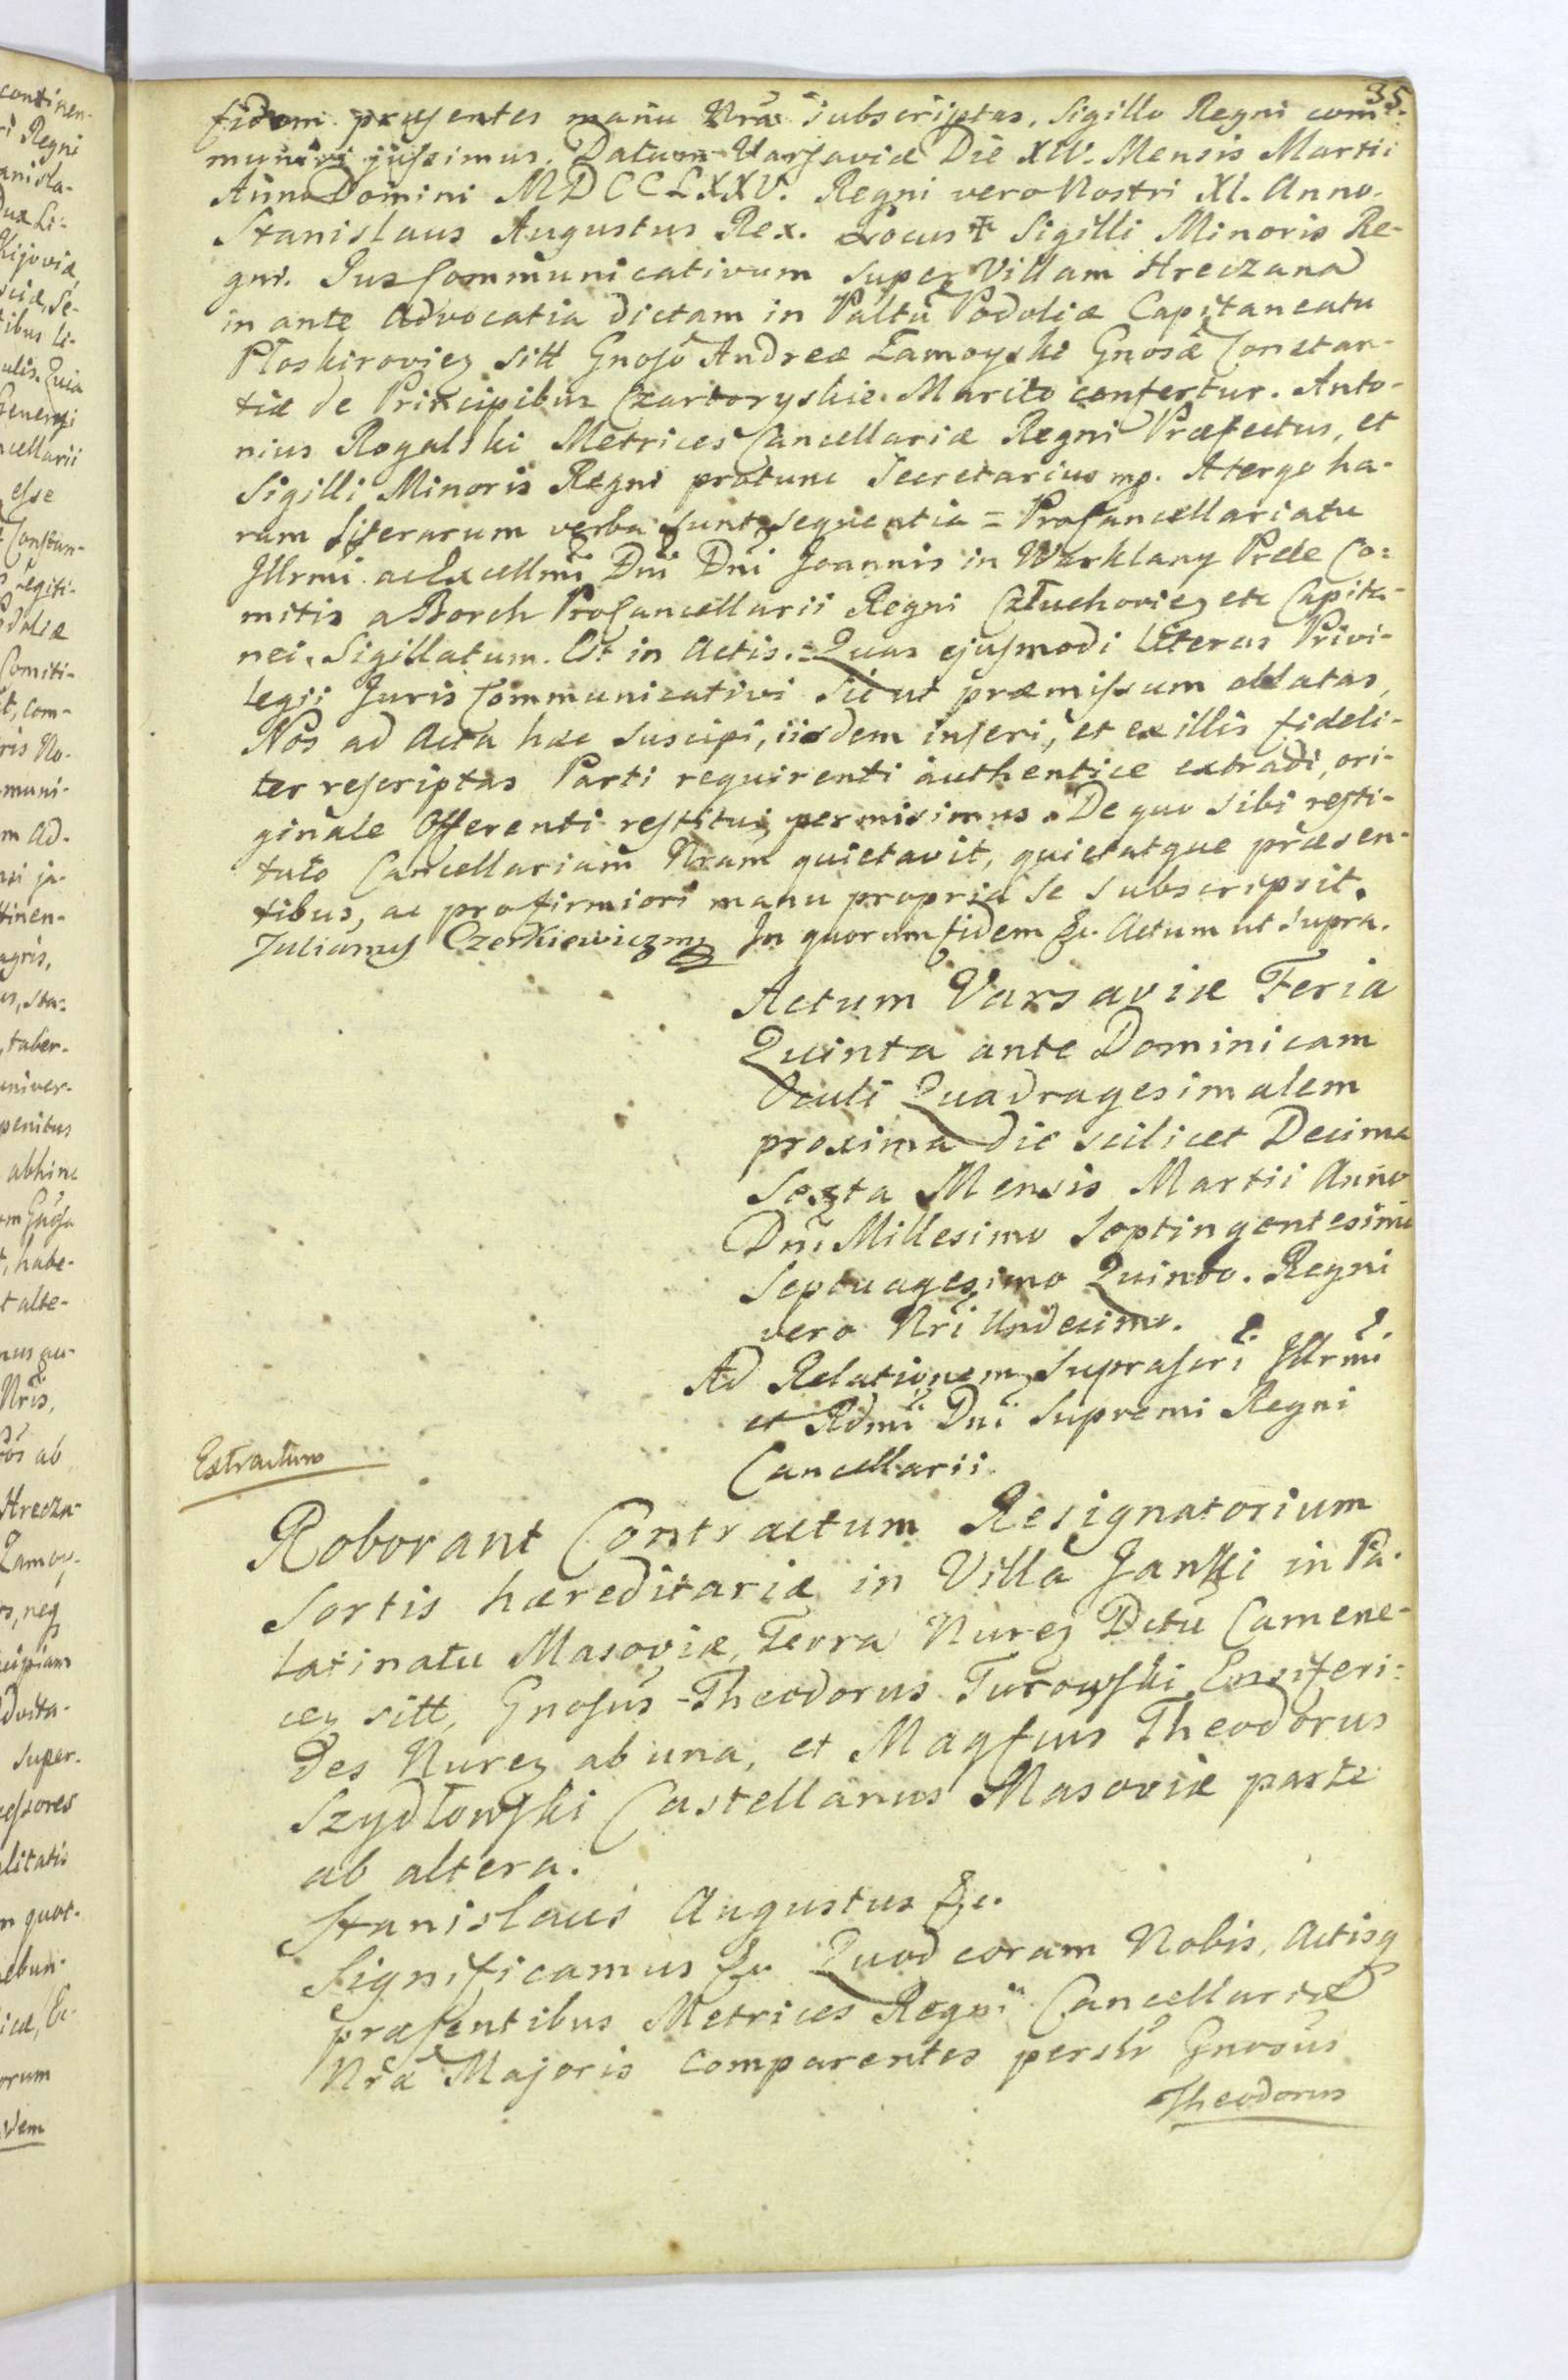 35.
fidem præsentes manu Nra subscriptas, Sigillo Regni com-
muniri jussimus. Datum Varsaviæ Die XIV. Mensis Martii
Anno Domini MDCCLXXV. Regni vero Nostri XI. Anno.
Stanislaus Augustus Rex. Locus ✝ Sigilli Minoris Re-
gni. Jus Communicativum super Villam Hreczana
in ante Advocatia dictam in Paltu Podoliæ Capitaneatu
Ploskirovien sitt Gnoso Andreæ Zamoyski Gnosæ Constan-
tiæ de Principibus Czartoryskie Marito confertur. Anto-
nius Rogalski Metrices Cancellariæ Regni Præfectus, et
Sigilli Minoris Regni protunc Secretarius mp. A tergo ha-
rum Literarum verba sunt sequentia = Procancellariatu
Illrmi ac Excellmi Dni Dni Joannis in Warklany Prele Co=
mitis a Borch Procancellarii Regni Człuchovien etc Capita-
nei, Sigillatum. Est in Actis. = Quas ejusmodi Literas Privi-
legii Juris Communicativi sicut præmissum oblatas,
Nos ad Acta hæc suscipi, iisdem inseri, et ex illis fideli-
ter rescriptas Parti requirenti authentice extradi, ori-
ginale Offerenti restitui permisimus. De quo sibi resti-
tuto Cancellariam Nram quietavit, quietatque præsen-
tibus, ac pro firmiori manu propria se subscripsit.
Julianus Czerkiewicz mp In quorum fidem &c. Actum ut supra.
Actum Varsaviæ Feria
Quinta ante Dominicam
Oculi Quadragesimalem
proxima die scilicet Decima
Sexta Mensis Martii Anno
Dni Millesimo Septingentesimo
Septuagesimo Quinto. Regni
vero Nri Undecimo.
Ad Relationem Suprascri Illrmi
et Rdmi Dni Supremi Regni
Cancellarii.
Extractum
Roborant Contractum Resignatorium
Sortis hæreditariæ in Villa Janki in Pa-
latinatu Masoviæ, Terra Nuren Dctu Camene-
cen sitt, Gnosus Theodorus Turowski Ensiferi-
des Nuren ab una, et Magfcus Theodorus
Szydłowski Castellanus Masoviæ parte
ab altera.
Stanislaus Augustus &c.
Significamus &c. Quod coram Nobis, Actisq
præsentibus Metrices Regni Cancellariæ
Nræ Majoris comparentes perslr Gnosus
Theodorus